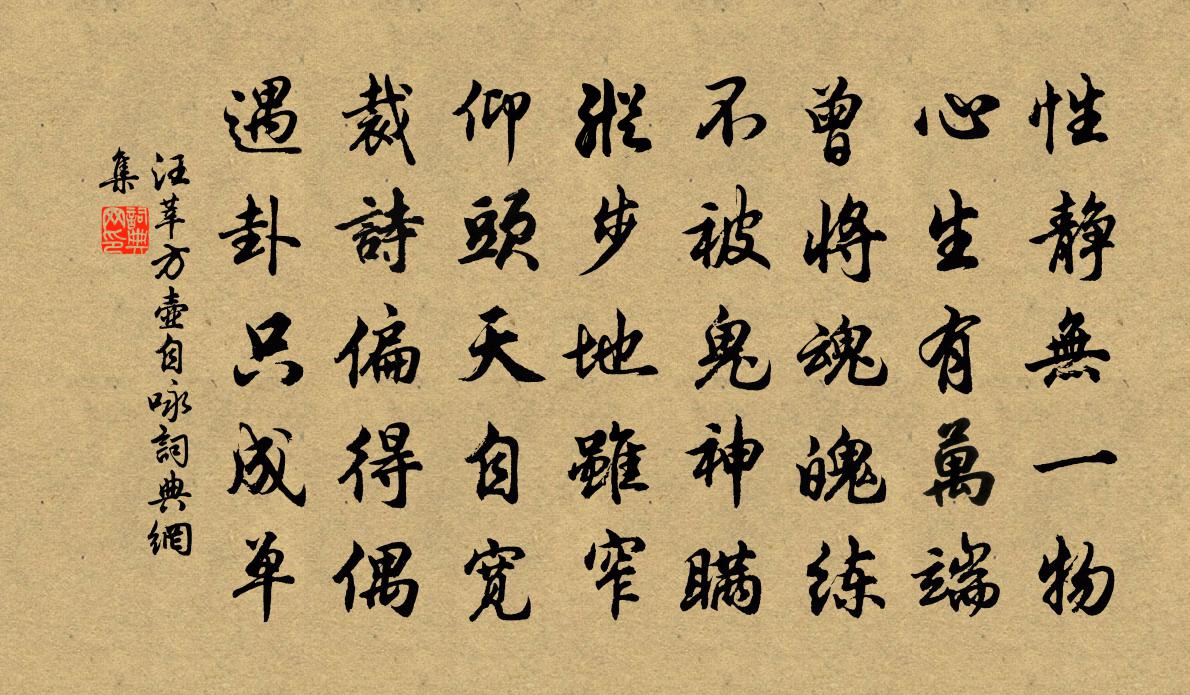 性静無一物
心生有萬端
曾將魂魄练
不被鬼神瞞
縱步地雖窄
仰頭天自寬
裁詩偏得偶
遇卦只成单
汪莘方壷自咏詞典網
集
詞典
网印